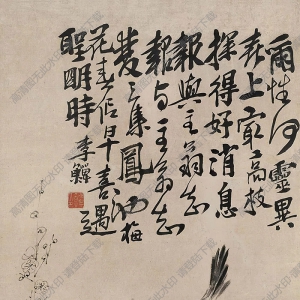 爾性何靈異
來上最高枝
探得好消息
報與主翁知
報与主翁知
集鳳池梅
花春信早喜遇
聖明時
李鱓